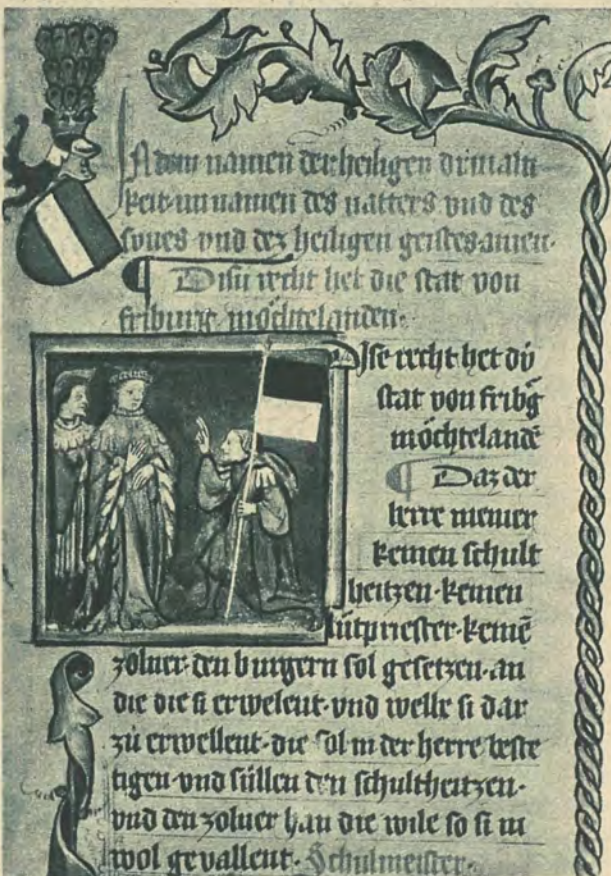 In dem namen der heiligen driualti
keit im namen des vatters vnd des
sunes vnd dez heiligen geistes amen·
Disu recht het die stat von
friburg möchtelanden·
Dise recht het dü
stat von fribg
möchtelandē
Daz der
herre niemer
keinen schult
heitzen·keinen
lütpriester·keinē
zolner·den burgern sol gesetzen·an
die die si erwelent·vnd welle si dar
zů erwellent·die sol in der herre beste
tigen·vnd süllen den schultheitzen·
vnd den zolner han die wile so si in
wol gevallent· Schulmeister·